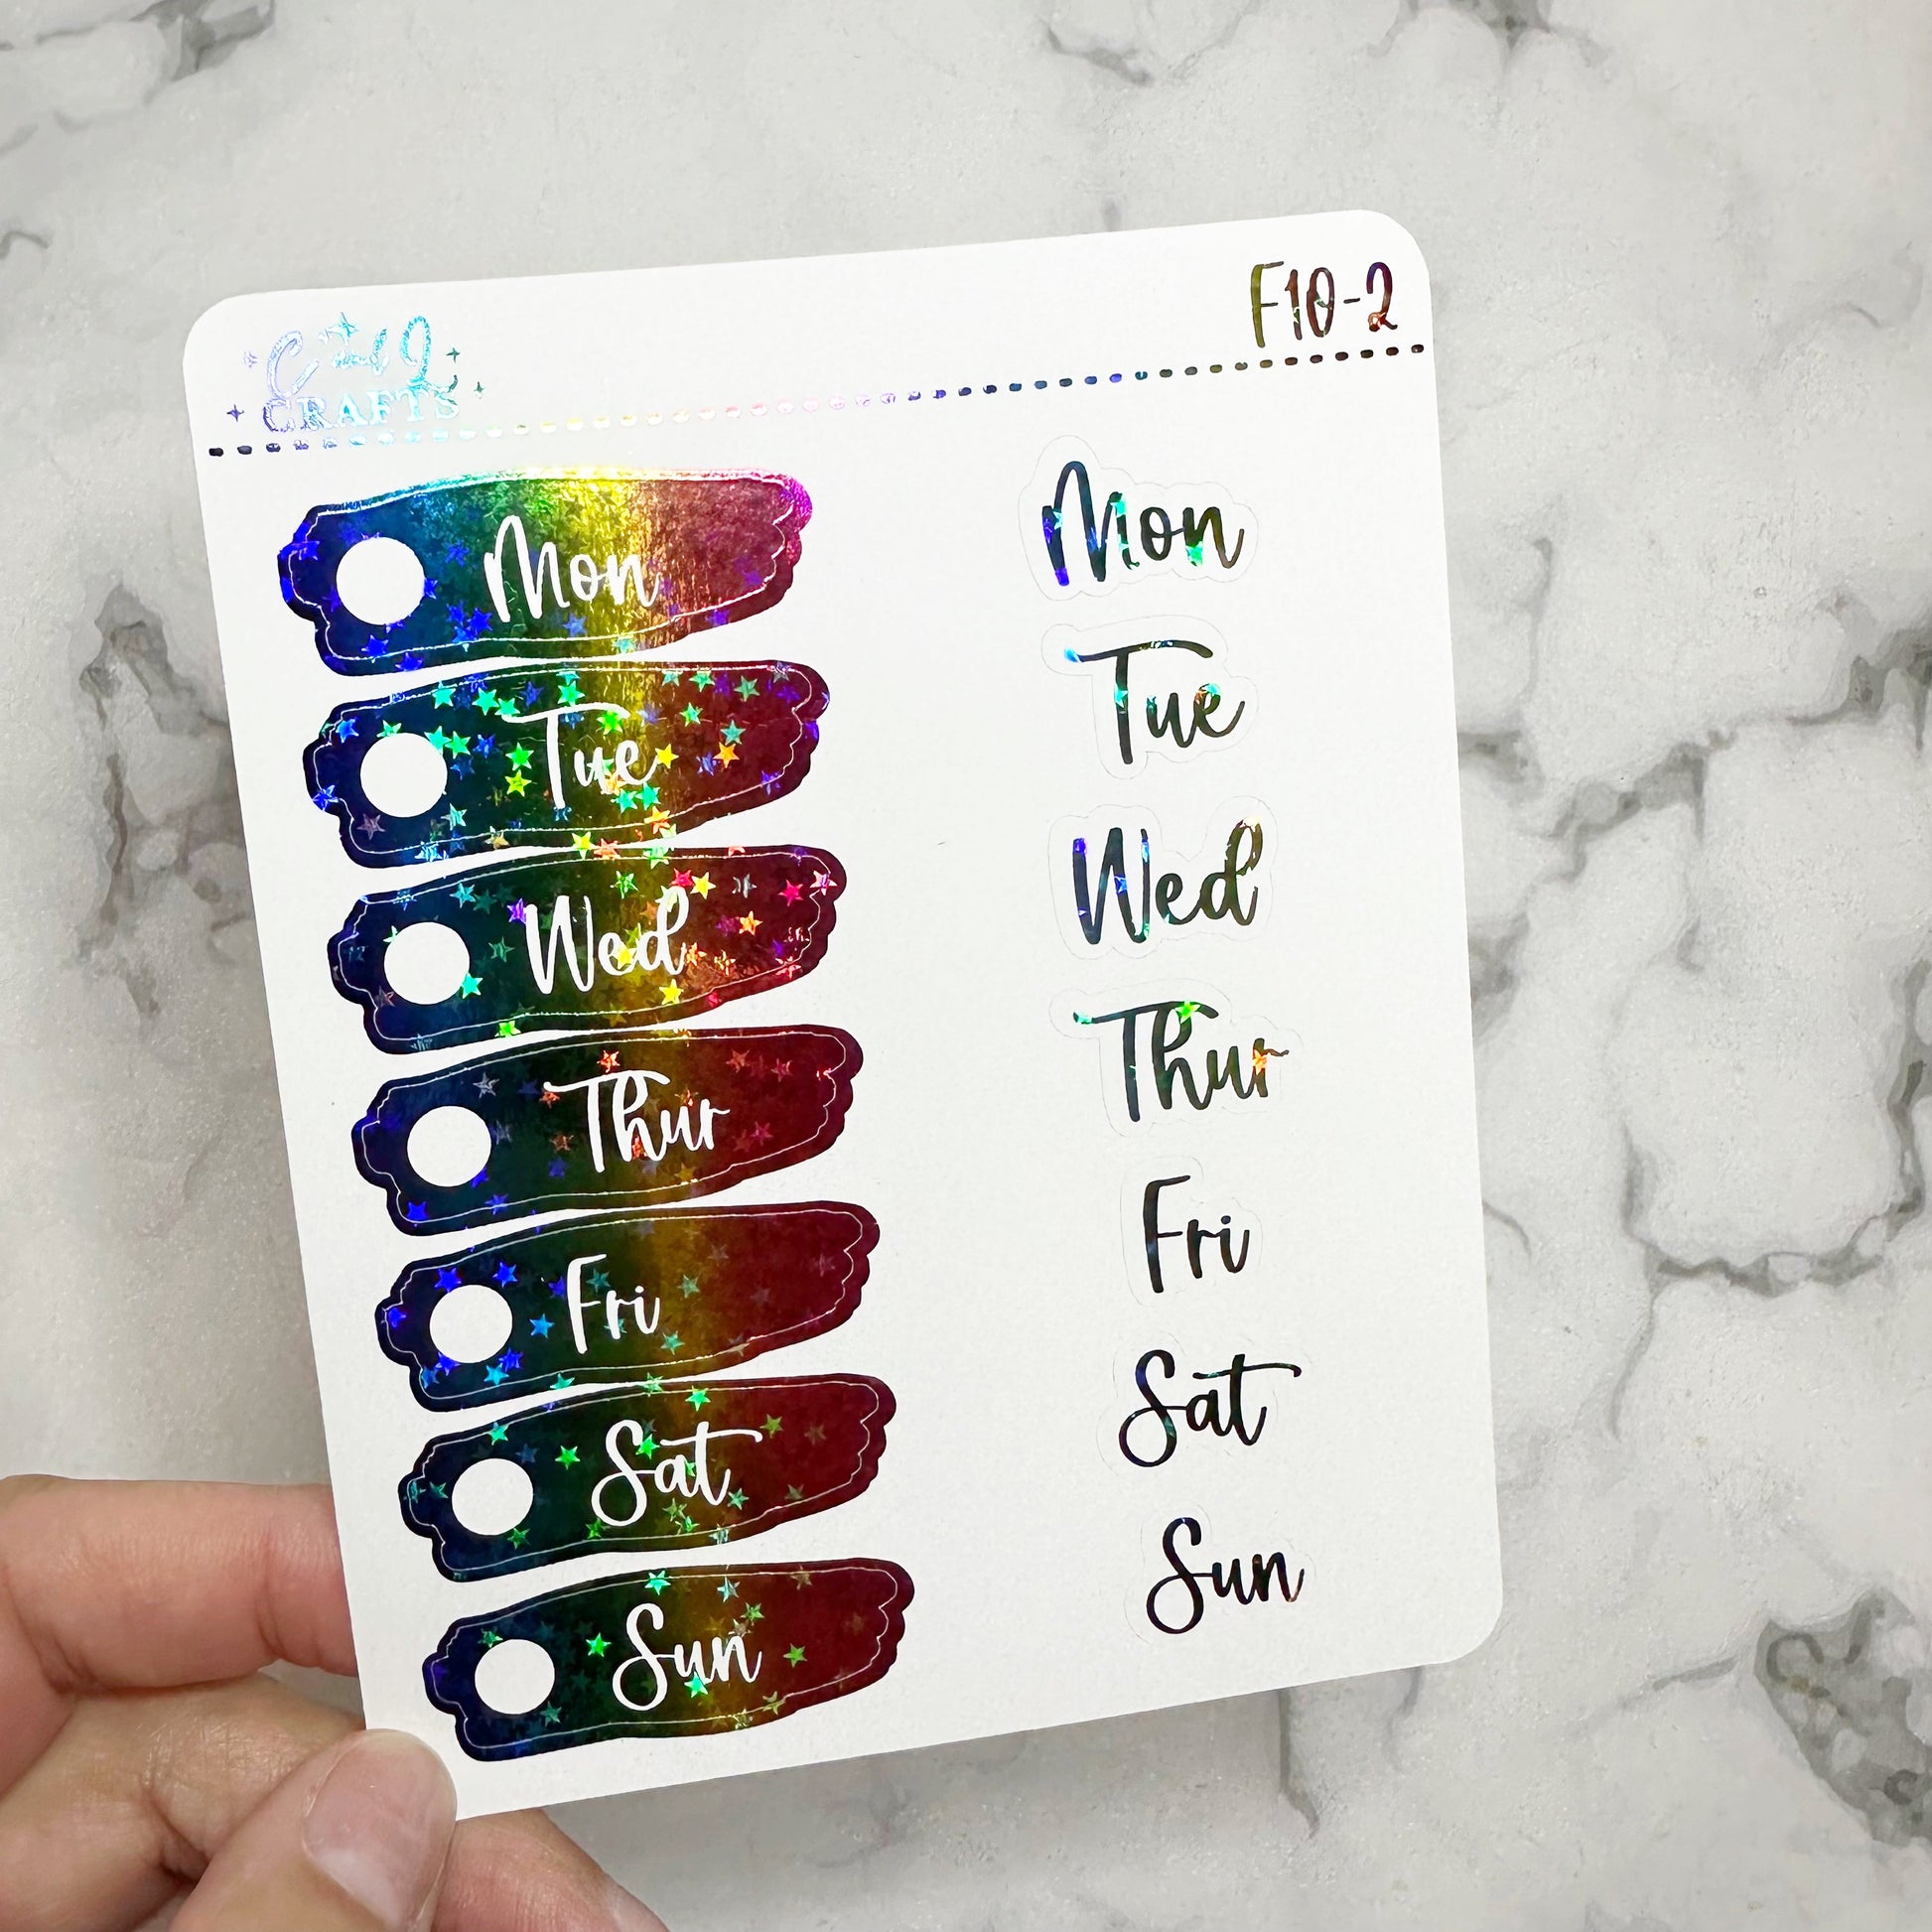 CRAFTS
F10-2
Mon
Tue
Wed
Thur
Fri
Sat
Sun
Mon
Tue
Wed
Thur
Fri
Sat
Sun